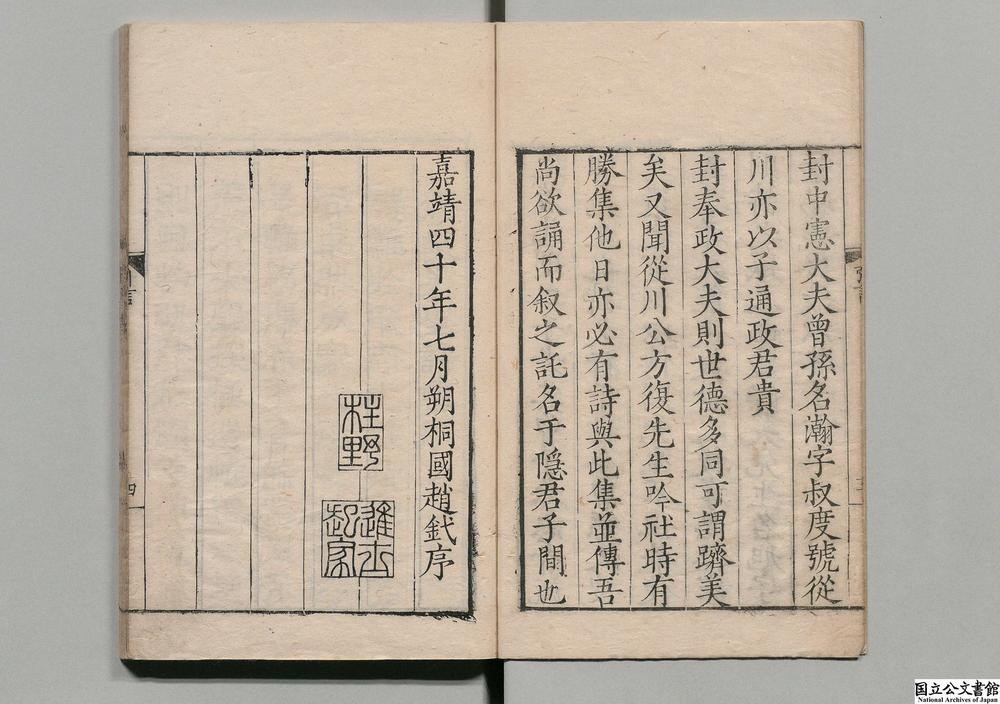 封中憲大夫曾孫名瀚字叔度號從
川亦以子通政君貴
封奉政大夫則世德多同可謂躋美
矣又聞從川公方復先生吟社時有
勝集他日亦必有詩與此集並傳吾
尚欲誦而叙之託名于隱君子間也
嘉靖四十年七月朔桐國趙釴序
柱野
進士起家
四
国立公文書館
National Archives of Japan